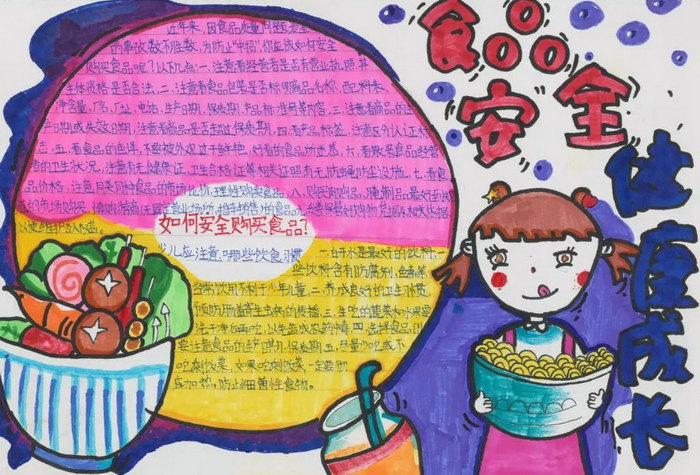 食品安全
健康成长
近年来，因食品质量问题发生
的事故数不胜数，为防止"中招"，你应该如何安全
购买食品呢？以下几点：一．注意看经营者是否有营业执照，其
主体资格是否合法．二．注意看食品包装是否标明商品名称，配料表，
净含量，厂名，厂址，电话，生产日期，保质期，产品标准号等内容．三．注意看商品的生
产日期或失效日期，注意看商品是否超过保质期．四．看产品标签，注意区分认证标
志．五．看食品的色泽，不要被外观过于鲜艳，好看的食品所迷惑．六．看散装食品经营
者的卫生状况，注意有无健康证，卫生合格证等相关证照有无防蝇防尘设施．七．看食
品价格，注意同类同种食品的市场比价，理性购买食品．八．购买肉制品，腌制品最好到
如何安全购买食品？
少儿应注意哪些饮食习惯
一．白开水是最好的饮料，一
些饮料含有防腐剂，色素等
经常饮用不利于少年儿童．二．养成良好的卫生习惯，
预防肠道寄生虫病的传播．三．生吃的蔬菜水果要
洗干净后再吃，以免造成农药中毒．四．选择食品时
要注意食品的生产日期，保质期．五．尽量少吃或不
吃剩饭菜，如果吃剩饭菜，一定要彻
底加热，防止细菌性食物．